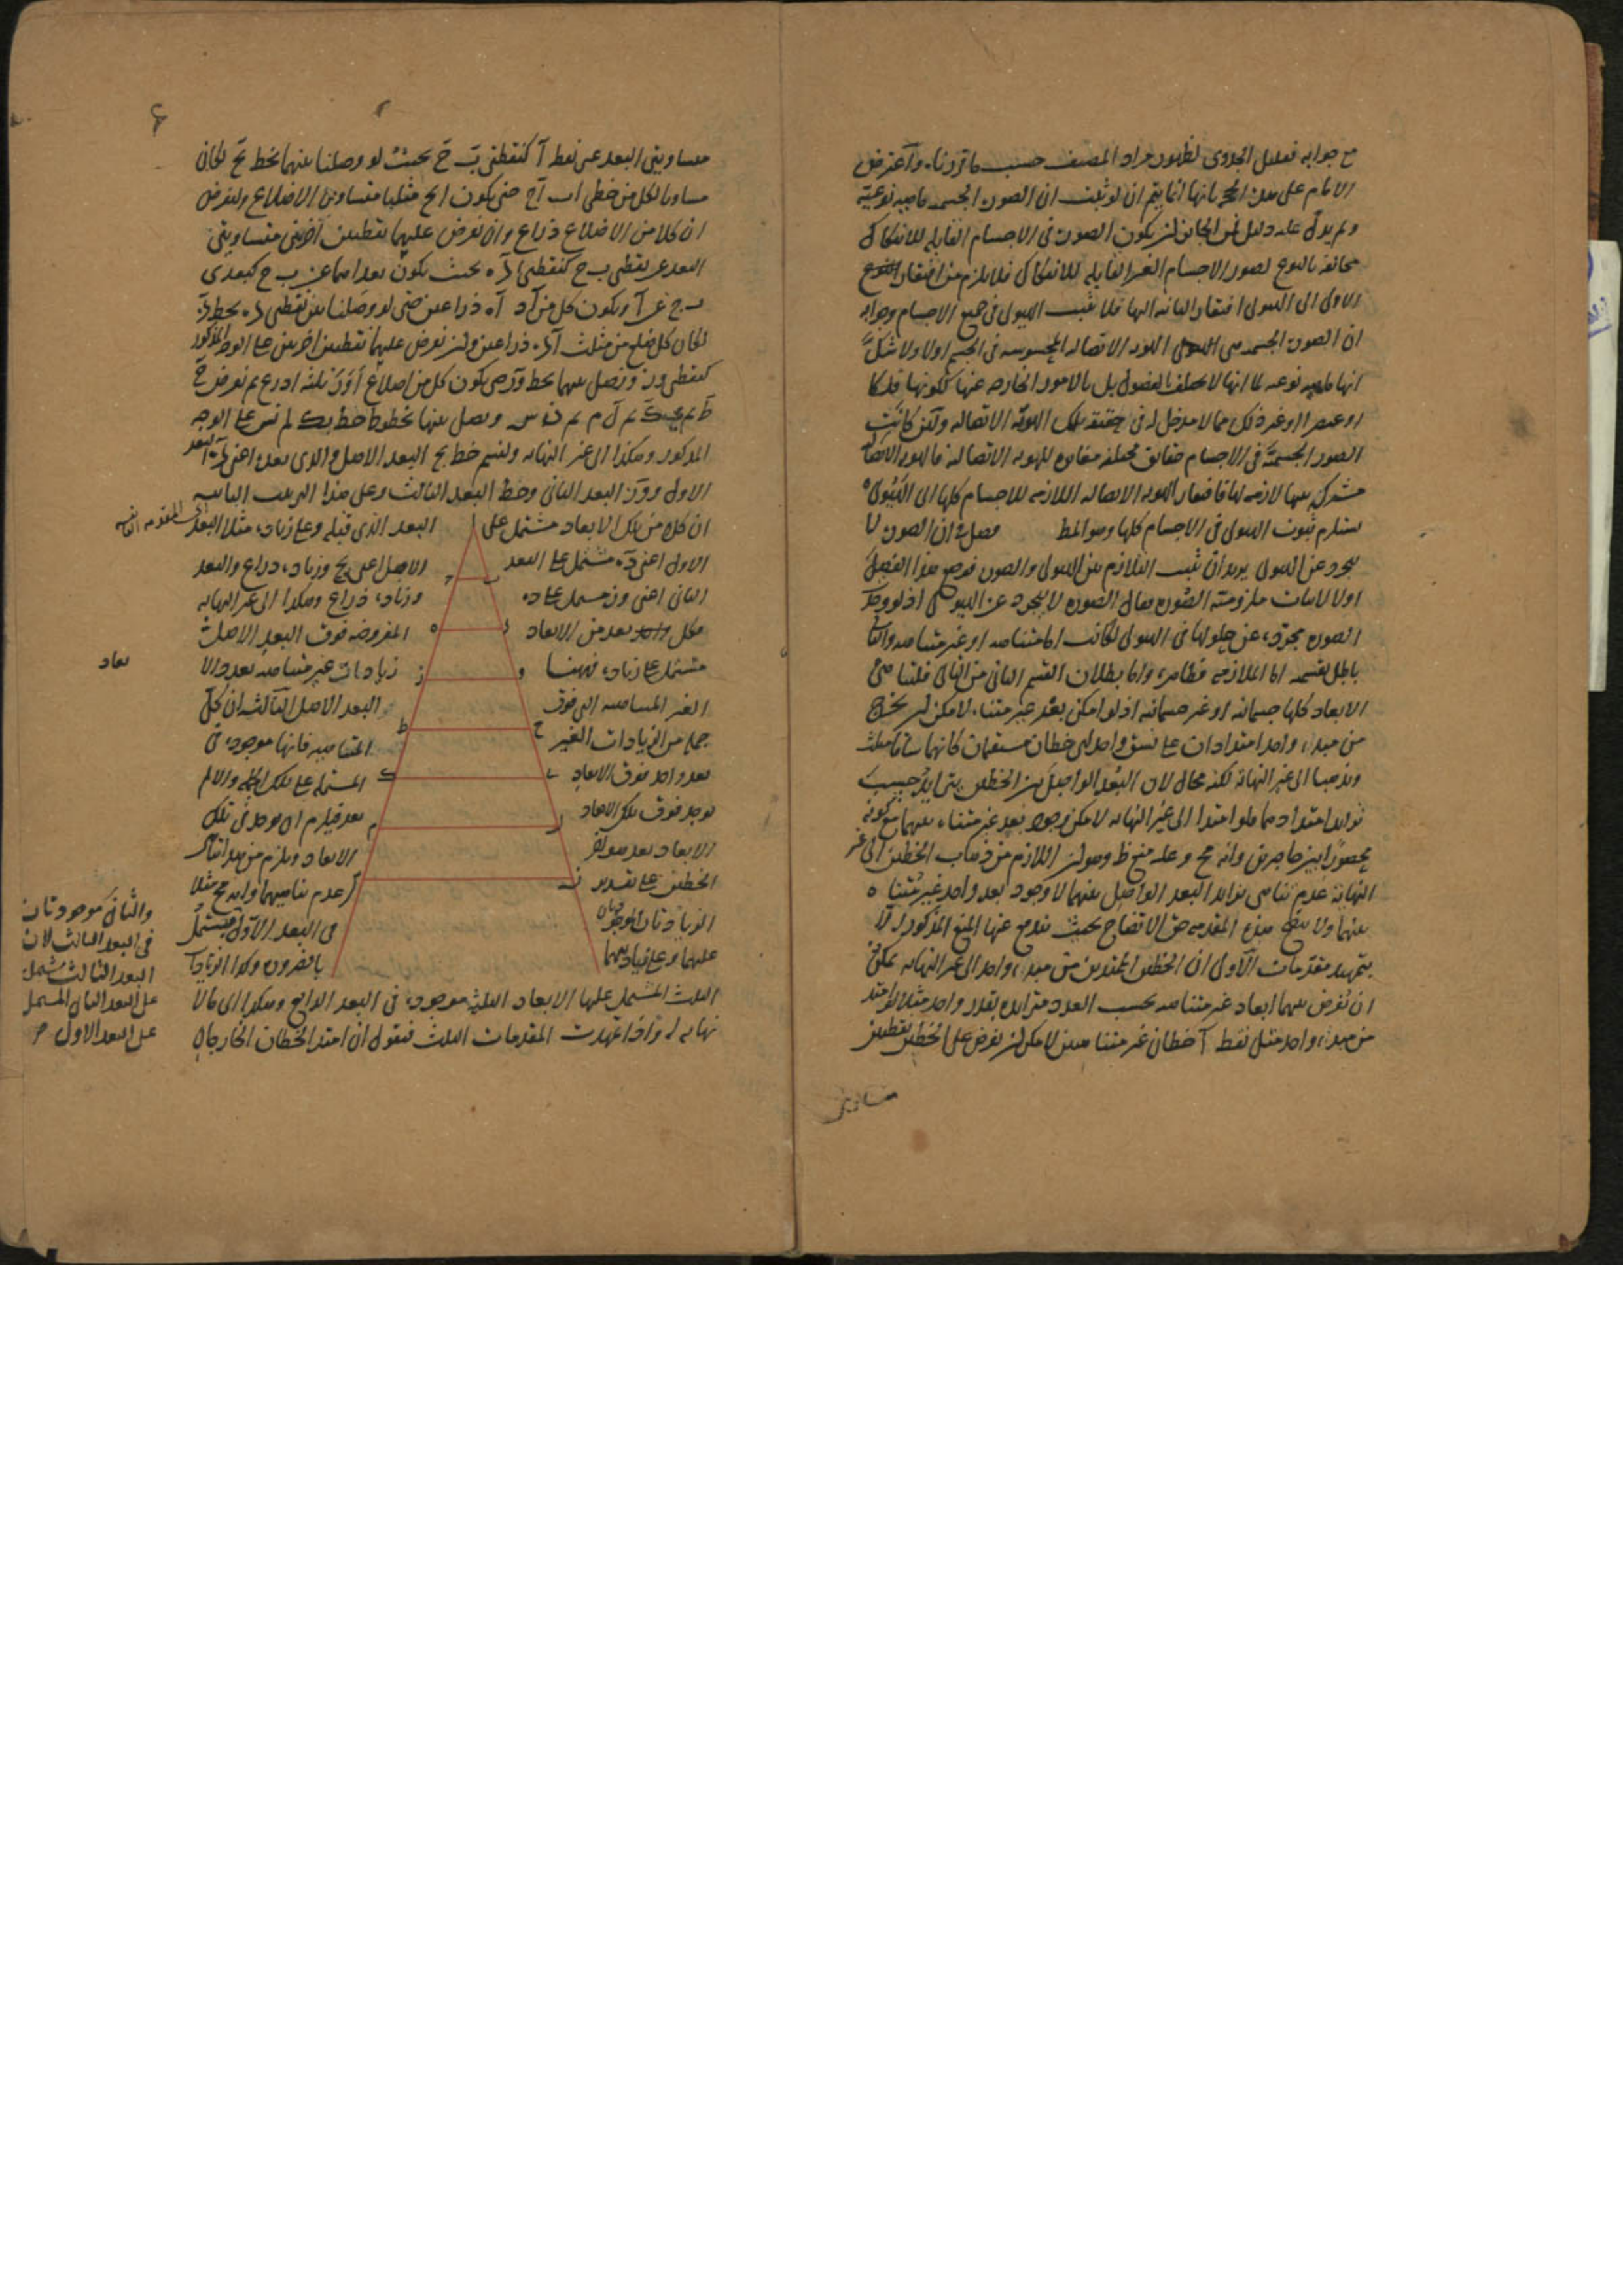 مع جوابه فقليل الجدوى لظهور مراد المصنف حسب ما قررناه واعترض
الامام على هذه الحجة بانها انما يتم ان لو ثبت ان الصورة الجسمية ماهية نوعية
ولم يدل عليه دليل فمن الجائز ان يكون الصورة في الاجسام القابلة للانفكاك
مخالفة بالنوع لصور الاجسام الغير القابلة للانفكاك فلا يلزم من افتقار
الاولى الى الهيولى افتقار الثانية اليها فلا تثبت الهيولى في جميع الاجسام وجوابه
ان الصورة الجسمية هي الهوية الاتصالية المحسوسة في الجسم اولا ولا شك
انها ماهية نوعية لما انها لا يختلف بالفصول بل بالامور الخارجة عنها ككونها فلكا
او عنصرا او غير ذلك مما لا مدخل له في حقيقة تلك الهوية الاتصالية ولئن كانت
الصور الجسمية في الاجسام حقائق مختلفة مغايرة للهوية الاتصالية فالهوية الاتصالية
مشتركة بينها لازمة لها فافتقار الهوية الاتصالية اللازمة للاجسام كلها الى الهيولى
يستلزم ثبوت الهيولى في الاجسام كلها وهو المط فصل في ان الصورة لا
تتجرد عن الهيولى يريد ان يثبت التلازم بين الهيولى والصورة فوضع هذا الفصل
اولا لاثبات ملزومية الصورة فقال الصورة لا تتجرد عن الهيولى اذ لو وجدت
الصورة مجردة عن حلولها في الهيولى لكانت اما متناهية او غير متناهية والتالي
باطل بقسميه اما الملازمة فظاهرة واما بطلان القسم الثاني من التالي فلتناهي
الابعاد كلها جسمانية او غير جسمانية اذ لو امكن بعد غير متناه لامكن ان يخرج
من مبدء واحد امتدادات على نسق واحد اي خطان مستقيمان كانهما ساقا مثلث
ويذهبا الى غير النهاية لكنه محال لان البعد الواصل بين الخطين يتزايد بحسب
تزايد امتدادهما فلو امتدا الى غير النهاية لامكن وجود بعد غير متناه بينهما مع كونه
محصورا بين حاصرين وانه مح وعليه منع ظ وهو ان اللازم من ذهاب الخطين الى غير
النهاية عدم تناهي تزايد البعد الواصل بينهما لا وجود بعد واحد غير متناه
بينهما ولا يتضح هذه المقدمة حق الاتضاح بحيث يندفع عنها المنع المذكور الا
بتمهيد مقدمات الاولى ان الخطين الممتدين من مبدء واحد الى غير النهاية يمكن
ان نفرض بينهما ابعاد غير متناهية بحسب العدد متزايدة بقدر واحد مثلا لو امتد
من مبدء واحد مثل نقطة آ خطان غير متناهيين لامكن ان نفرض على الخطين نقطتين
متساويتي
متساويتي البعد عن نقطة آ كنقطتي ب ج بحيث لو وصلنا بينهما بخط ب ج لكان
مساويا لكل من خطي اب اج حتى يكون اب ج مثلثا متساوي الاضلاع ولنفرض
ان كلا من الاضلاع ذراع وان نفرض عليهما نقطتين اخريين متساويتي
البعد عن نقطتي ب ج كنقطتي د ه بحيث يكون بعداهما عن ب ج كبعدي
ب ج عن آ ويكون كل من آد آه ذراعين حتى لو وصلنا بين نقطتي د ه بخط د ه
لكان كل ضلع من مثلث آ د ه ذراعين وان نفرض عليهما نقطتين اخريين على الوجه المذكور
كنقطتي و ز ونصل بينهما بخط و ز حتى يكون كل من اضلاع آ و ز ثلثة اذرع ثم نفرض ح
ط ثم ي ك ثم ل م ثم ن س ونصل بينها بخطوط ح ط ي ك ل م ن س على الوجه
المذكور وهكذا الى غير النهاية ولنسم خط ب ج البعد الاصل والذي بعده اعني د ه البعد
الاول و و ز البعد الثاني و ح ط البعد الثالث وعلى هذا الترتيب الثانية
ان كلا من تلك الابعاد مشتمل على البعد الذي قبله وعلى زيادة مثلا البعد
الاول اعني د ه مشتمل على البعد الاصل اعني ب ج وزيادة ذراع والبعد
الثاني اعني و ز مشتمل على د ه وزيادة ذراع وهكذا الى غير النهاية
فكل بعد من الابعاد المفروضة فوق البعد الاصل
مشتمل على زيادة فههنا زيادات غير متناهية بعدد الا
بعاد
الغير المتناهية التي فوق البعد الاصل الثالثة ان كل
جملة من الزيادات الغير المتناهية فانها موجودة في
بعد واحد فوق الابعاد المشتملة على تلك الجملة والا لم
يوجد فوق تلك الابعاد بعد فيلزم ان يوجد في تلك
الابعاد بعد هو اخر الابعاد ويلزم من هذا تناهي
الخطين على تقدير عدم تناهيهما وانه مح مثلا
الزيادتان الموجودتان في البعد الاول مشتمل
عليهما وعلى زيادتهما بالضرورة وكذا الزيادات
الثلث المشتمل عليها الابعاد الثلثة موجودة في البعد الرابع وهكذا الى ما لا
نهاية له واذا تمهدت المقدمات الثلث فنقول ان امتد الخطان الخارجان
والثاني موجودتان
في البعد الثالث لان
البعد الثالث مشتمل
على البعد الثاني المشتمل
على البعد الاول